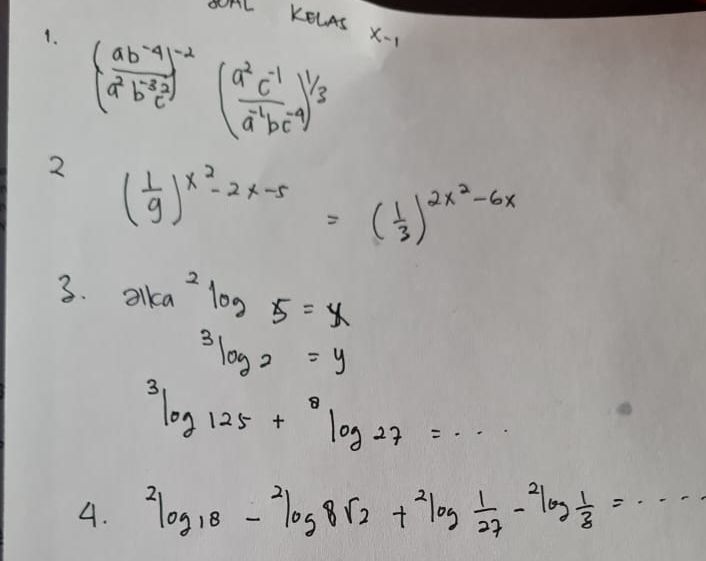 SOAL KELAS X-1
1. (ab⁻⁴ / a²b⁻³c²)⁻² (a²c⁻¹ / a⁻¹bc⁻⁴)^(1/3)
2 (1/9)^(x²-2x-5) = (1/3)^(2x²-6x)
3. Jika ²log 5 = x
³log 2 = y
³log 125 + ⁸log 27 = ....
4. ²log 18 - ²log 8√2 + ²log 1/27 - ²log 1/3 = .....